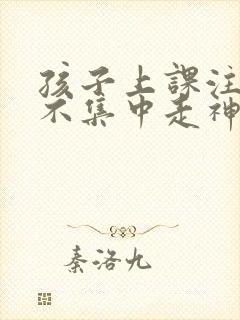 孩子上課注
不集中走神
秦洛九